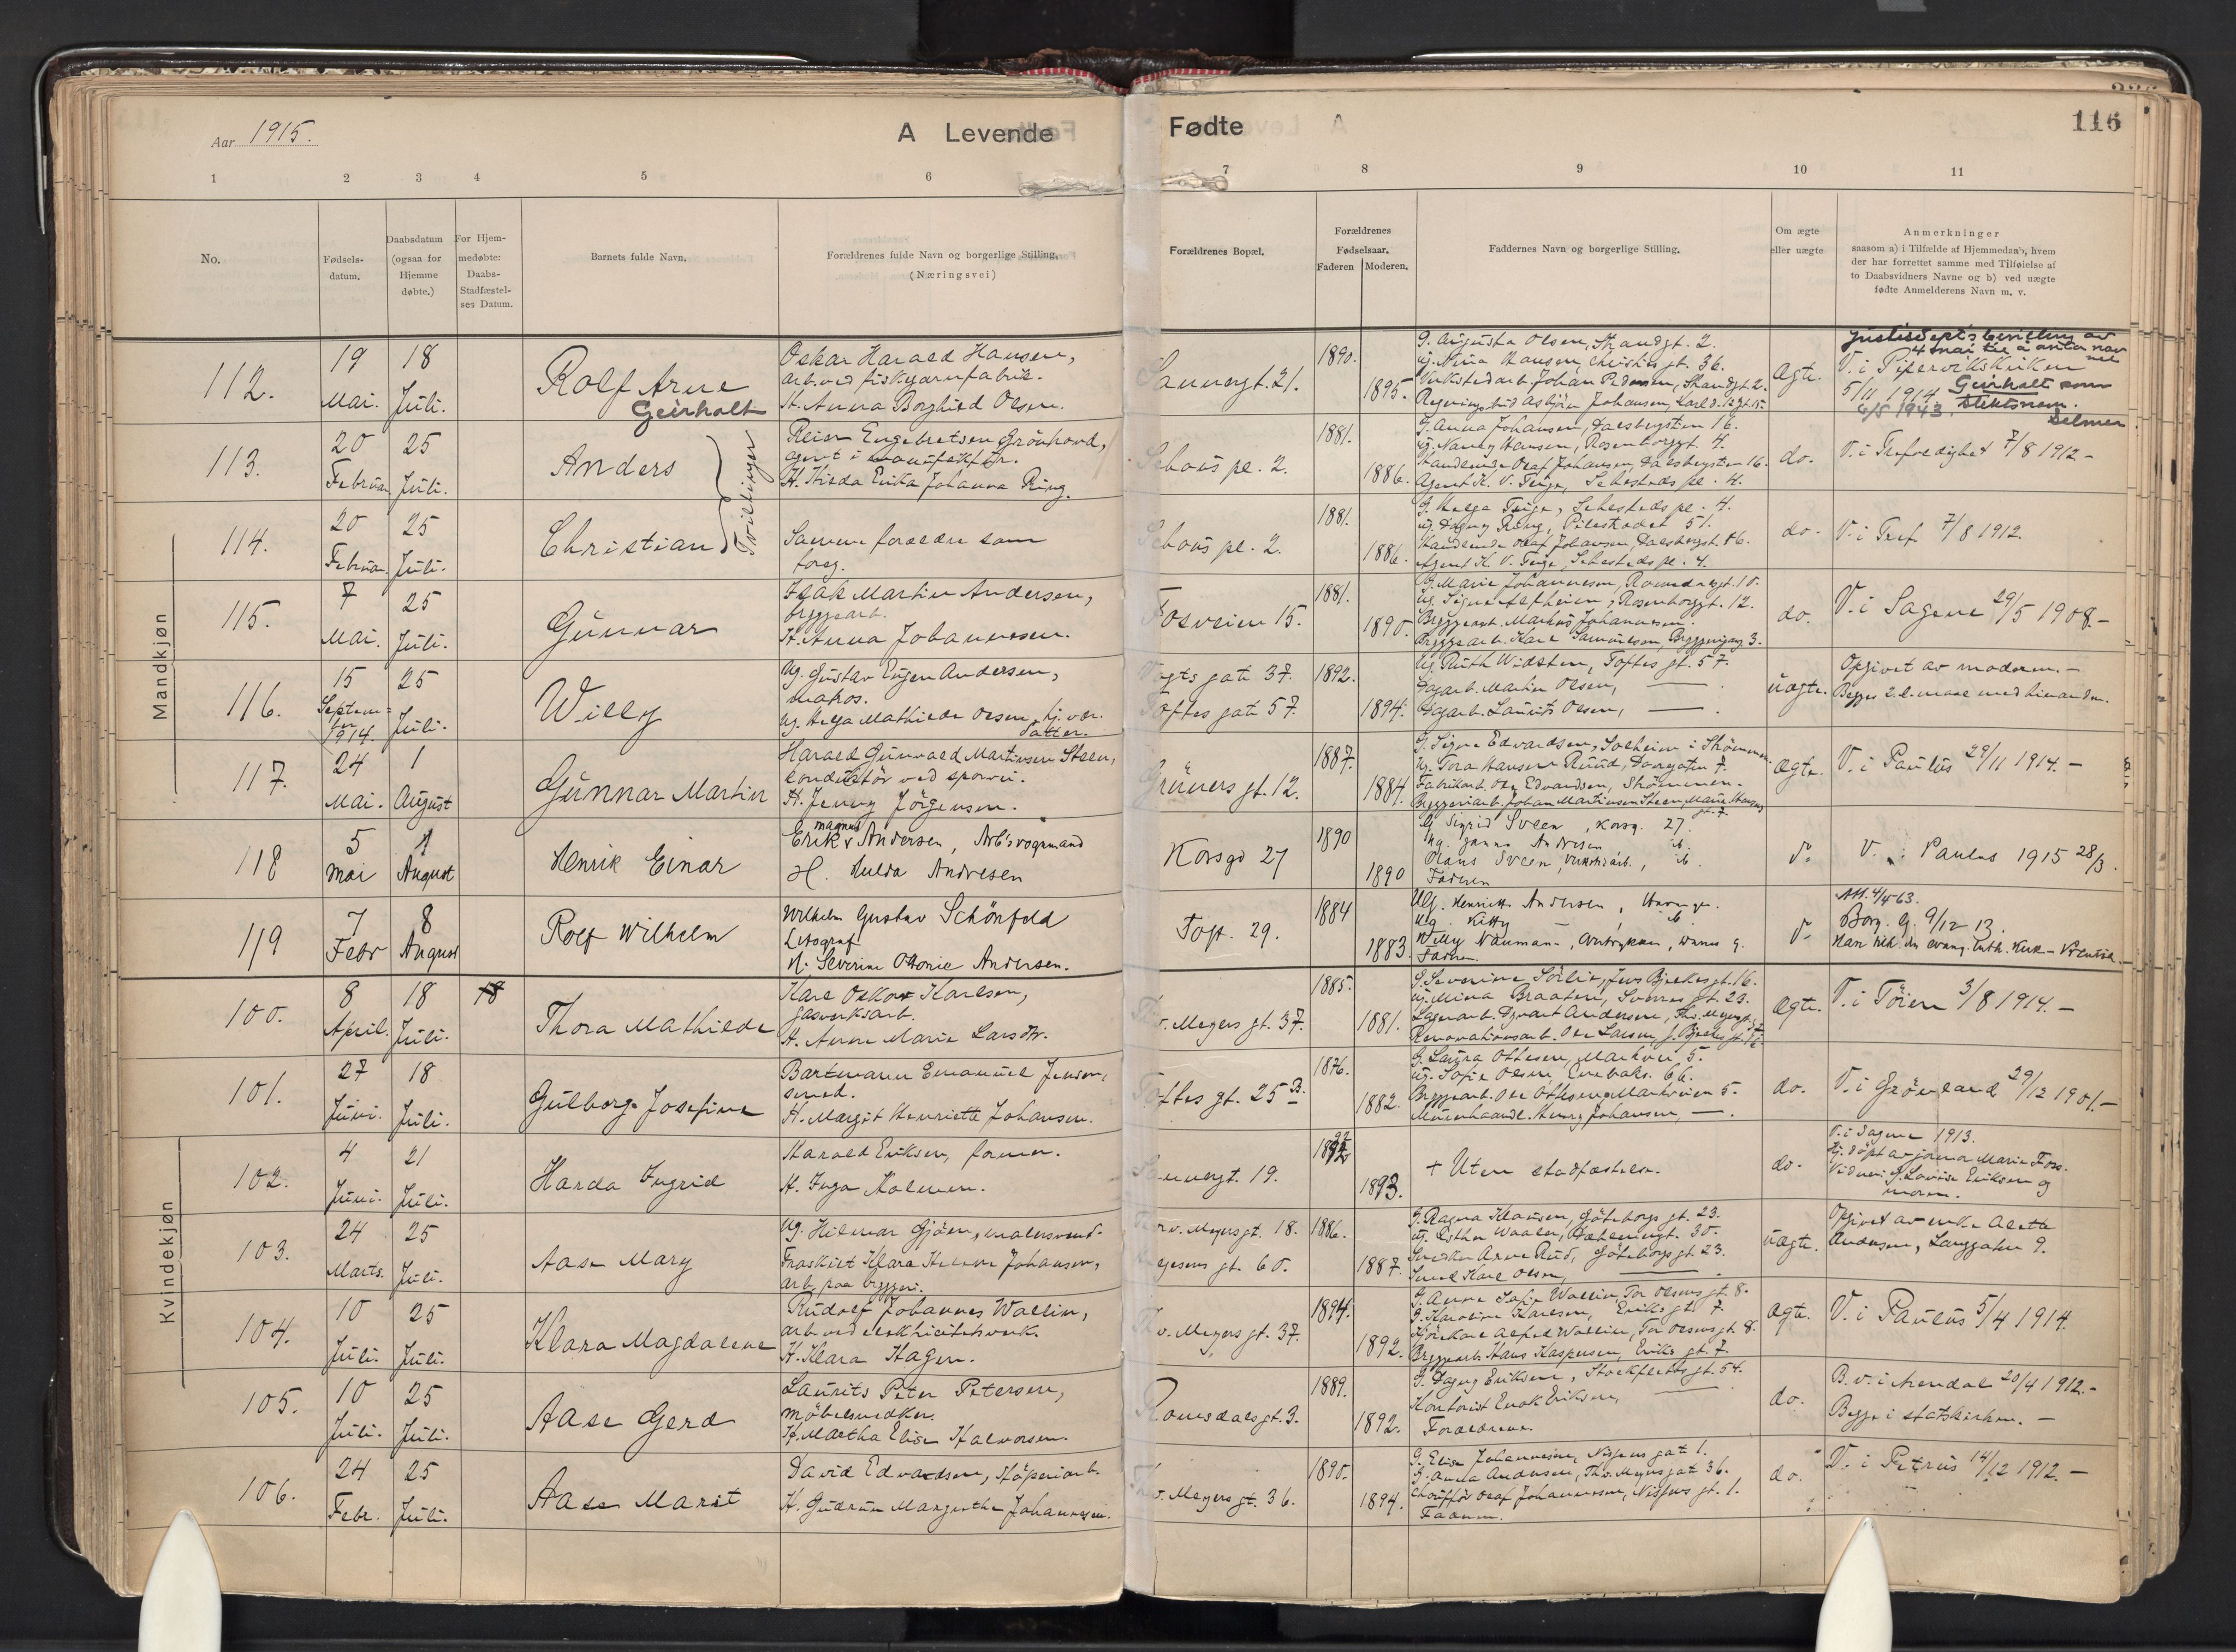 Aar 1915.
A Levende Fødte
116
1 2 3 4 5 6 7 8 9 10 11
No.
Fødsels-
datum.
Daabsdatum
(ogsaa for
Hjemme
døbte.)
For Hjem-
medøbte:
Daabs-
Stadfæstel-
ses Datum.
Barnets fulde Navn.
Forældrenes fulde Navn og borgerlige Stilling.
(Næringsvei)
Forældrenes Bopæl.
Forældrenes
Fødselsaar.
Faderen Moderen.
Faddernes Navn og borgerlige Stilling.
Om ægte
eller uægte
Anmerkninger
saasom a) i Tilfælde af Hjemmedaab, hvem
der har forrettet samme med Tilføielse af
to Daabsvidners Navne og b) ved uægte
fødte Anmelderens Navn m. v.
Mandkjøn
112.
19
Mai.
18
Juli.
Rolf Arne
Geirholt
Oskar Harald Hansen,
arb. ved fiskgarnfabrik.
H. Anna Borghild Olsen.
Sannergt. 21.
1890.
1895.
G. Augusta Olsen, Strandgt. 2.
Ug. Nina Hansen, Christies gt. 36.
Verkstedarb. Johan Pedersen, Strandgt. 2.
Regningsbud Asbjörn Johansen, Karl d. 12 gt. 15.
Ægte.
Justisdept's bevilling av
4 mai til å anta nav
net
V. i Pipervikskirken
5/11 1914 Geirholt som
slektsnavn.
6/5 1943. Delmer
113.
20
Februar.
25
Juli.
Anders
Tvillinger
Reier Engebretsen Grönhovd,
agent i manufaktur.
H. Hilda Erika Johanna Ring.
Schous pl. 2.
1881.
1886.
G. Anna Johansen, Daelsbergsten 16.
Ug. Nanny Hansen, Rosenborggt. 4.
Handlende Olaf Johansen, Daelsbergsten 16.
Agent K. V. Teige, Sehesteds pl. 4.
do.
V. i Trefoldighet 7/8 1912 -
114.
20
Februar.
25
Juli.
Christian
Samme foraeldre som
foreg.
Schous pl. 2.
1881.
1886.
G. Helga Teige, Sehesteds pl. 4.
Ug. Dagny Ring, Pilestraedet 51.
Handlende Olaf Johansen, Daelsbergst. 16.
Agent K. V. Teige, Sehesteds pl. 4.
do.
V. i Tref 7/8 1912.
115.
7
Mai.
25
Juli.
Gunnar
Isak Martin Andersen,
bryggearb.
H. Anna Johannesen.
Fosveien 15.
1881.
1890.
G. Marie Johannesen, Romsdalsgt. 10.
Ug. Signe Alfheim, Rosenborggt. 12.
Bryggearb. Markus Johannesen.
Bryggearb. Karl Samuelsen, Bryggerigang 3.
do.
V. i Sagene 29/5 1908.-
116.
15
Septem-
ber
1914.
25
Juli.
Willy
Ug. Gustav Eugen Andersen,
matros.
Ug. Helga Mathilde Olsen, hj. vær.
datter.
Vogts gate 37.
Toftes gate 57.
1892.
1894.
Ug. Ruth Widsten, Toftes gt. 57.
Dagarb. Martin Olsen, —
Dagarb. Laurits Olsen, — .
Uægte.
Opgivet av moderen.-
Begges 2. l. mael med hinanden.
117.
24
Mai.
1
August
Gunnar Martin
Harald Gunvald Martinsen Steen,
konduktör ved sporvei.
H. Jenny Jörgensen.
Grüners gt. 12.
1887.
1884.
G. Signe Edvardsen, Solheim i Strömmen.
Ug. Tora Hansen Ruud, Daaegaten 7.
Fabrikarb. Ole Edvardsen, Strömmen.
Bryggeriarb. Johan Martinsen Steen, Marie Hauges
gt. 7.
Ægte.
V. i Paulus 29/11 1914.-
118
5
Mai
1
August
Henrik Einar
Erik Magnus Andersen, Arb's vognmand
H. Hulda Andresen
Korsgd 27
1890
1890
Ug Sigrid Sveen, Korsg. 27.
Ug. Janna Andresen ib.
Olaus Sveen, Verkstedarb., ib.
Faderen
do
V. i Paulus 1915 28/3.
119
7
Febr
8
August
Rolf Wilhelm
Wilhelm Gustav Schönfeld
Litograf
H. Severine Otonie Andersen.
Toft. 29.
1884
1883.
Ulg. Henriette Andersen,
Ulg. Kitty — ib
Willy Naumann,
Faderen.
do
Att. 4/5 63.
Borg. g. 9/12 13.
Han tilh. den evang. luth. Kirke - Preussen.
Kvindekjøn
100.
8
April.
18
Juli.
18
Thora Mathilde
Karl Oskar Karlsen,
gasverksarb.
H. Anne Marie Larsdtr.
Thv. Meyers gt. 37.
1885.
1881.
G. Severine Sörlie, Jens Bjelkes gt. 16.
Ug. Mina Braaten, Sverres gt. 23.
Lagerarb. Edvart Andersen, Thv. Meyers gt. 37.
Renovationsarb. Ole Larsen, J. Bjelkes gt. 16.
Ægte.
V. i Töien 3/8 1914. -
101.
27
Juni.
18
Juli.
Gulborg Josefine
Bartmann Emanuel Jensen,
smed.
H. Margit Henriette Johansen.
Toftes gt. 25 B.
1876.
1882.
G. Laura Ottesen, Markvei 5.
Ug. Sofie Olsen, Enebakv. 66.
Bryggearb. Ole Ottesen, Markveien 5.
Murerhaandl. Henry Johansen, — .
do.
V. i Grönland 29/12 1901.-
102.
4
Juni.
21
Juli.
Harda Ingrid
Harald Eriksen, former.
H. Inga Holmen.
Sannergt. 19.
1892
1893.
+ Uten stadfæstelse.
do.
V. i Sagene 1913.
Hj. döpt av jormor Marie Foss.
Vidner: G. Lovise Eriksen og
moren.
103.
24
Marts.
25
Juli.
Aase Mary
Ug. Hilmar Gjöen, malersvend.
Fraskilt Klara Helene Johansen,
arb. paa bryggeri.
Thorv. Meyers gt. 18.
gt. 60.
1886.
1887.
G. Ragna Klausen, Göteborgs gt. 23.
Ug. Esther Waaler, Dæhlenengt. 30.
Snedker Arne Rud, Göteborgs gt 23.
Smed Karl Olsen, — .
Uægte.
Opgivet av enke Alette
Andersen, Langgaten 9.
104.
10
Juli.
25
Juli.
Klara Magdalene
Rudolf Johannes Wallin,
arb. ved elektricitetsverk.
H. Klara Hagen.
Thv. Meyers gt. 37.
1894.
1892.
G. Anne Sofie Wallin, Tor Olsens gt. 8.
G. Karoline Karlsen, Eriks gt. 7.
Kjörekarl Alfred Wallin, Tor Olsens gt. 8.
Bryggearb. Hans Kaspersen, Eriks gt. 7.
Ægte.
V. i Paulus 5/4 1914.
105.
10
Juli.
25
Juli.
Aase Gerd
Laurits Peter Petersen,
Möbelsnedker.
H. Martha Elise Halvorsen.
Romsdals gt. 3.
1889.
1892.
G. Dagny Eriksen, Stockfleths gt. 54.
Kontorist Enok Eriksen, —
Foraeldrene.
do.
B. v. i Arendal 20/4 1912.-
Begge i statskirken. -
106.
24
Febr.
25
Juli.
Aase Marit
David Edvardsen, stöperiarb.
H. Gudrun Margrethe Johannesen.
Thv. Meyers gt. 36.
1890.
1894.
G. Elise Johannesen, Nissens gate 1.
G. Anna Andersen, Thv. Meyers gate 36.
Chaufför Olaf Johannesen, Nissens gt. 1.
Faderen.
do.
V. i Petrus 14/12 1912. -